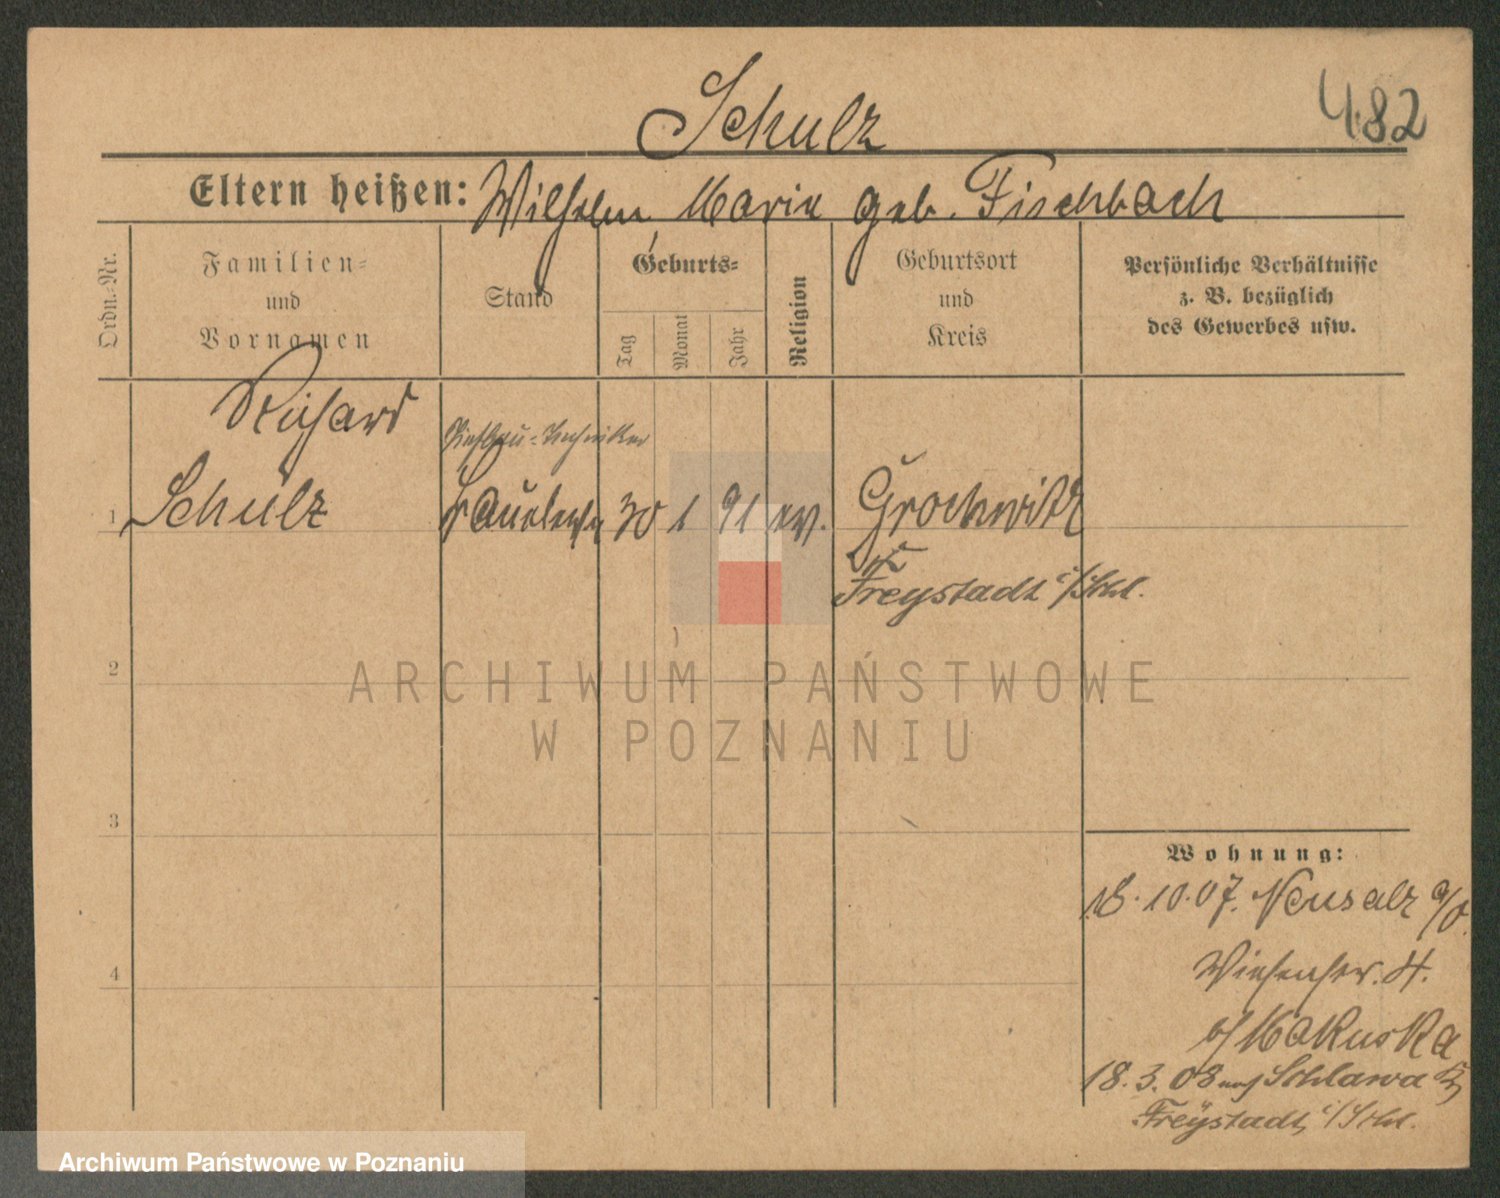 Schulz
482
Eltern heißen: Wilhelm Marie geb. Fischbach
Ordn.-Nr.
Familien-
und
Vornamen
Stand
Geburts-
Tag
Monat
Jahr
Religion
Geburtsort
und
Kreis
Persönliche Verhältnisse
z. B. bezüglich
des Gewerbes usw.
Richard
Tiefbau-Techniker
1 Schulz 30 1 91 ev. Grochwitz
Freystadt i/Schl.
2
ARCHIWUM PAŃSTWOWE
W POZNANIU
3
4
Wohnung:
18.10.07. Neusalz a/O.
Wiesenstr. 4.
b/ Makuska
18.3.08 nach Schlawa Kr
Freystadt, i/Schl.
Archiwum Państwowe w Poznaniu